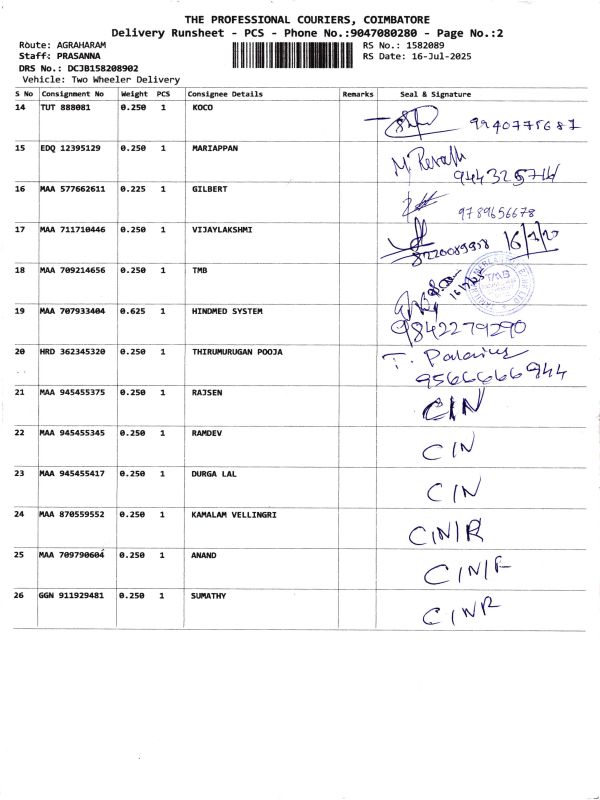 THE PROFESSIONAL COURIERS, COIMBATORE
Delivery Runsheet - PCS - Phone No.:9047080280 - Page No.:2
Route: AGRAHARAM RS No.: 1582089
Staff: PRASANNA RS Date: 16-Jul-2025
DRS No.: DCJB158208902
Vehicle: Two Wheeler Delivery
S No Consignment No Weight PCS Consignee Details Remarks Seal & Signature
14 TUT 888081 0.250 1 KOCO 9940775681
15 EDQ 12395129 0.250 1 MARIAPPAN M. Revath
944325714
16 MAA 577662611 0.225 1 GILBERT
9789656678
17 MAA 711710446 0.250 1 VIJAYLAKSHMI 8220089938 16/7/20
18 MAA 709214656 0.250 1 TMB TMB
19 MAA 707933404 0.625 1 HINDMED SYSTEM
9842279290
20 HRD 362345320 0.250 1 THIRUMURUGAN POOJA T.
9566666944
21 MAA 945455375 0.250 1 RAJSEN CIN
22 MAA 945455345 0.250 1 RAMDEV CIN
23 MAA 945455417 0.250 1 DURGA LAL CIN
24 MAA 870559552 0.250 1 KAMALAM VELLINGRI CIN/R
25 MAA 709790604 0.250 1 ANAND CIN/R
26 GGN 911929481 0.250 1 SUMATHY CINR